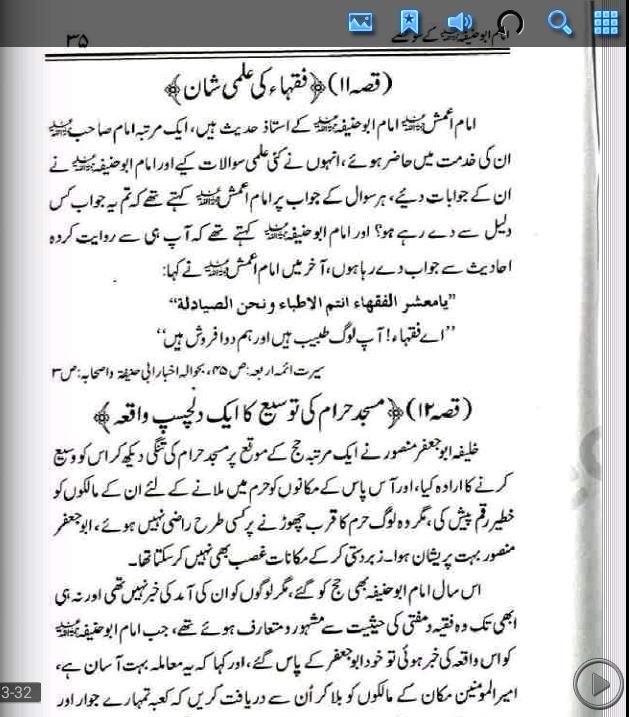 امام ابوحنیفہؒ کے سو قصے
۳۵
(قصہ ۱۱) ﴿فقہاء کی علمی شان﴾
امام اعمشؒ امام ابوحنیفہؒ کے استاذ حدیث ہیں، ایک مرتبہ امام صاحبؒ
ان کی خدمت میں حاضر ہوئے، انہوں نے کئی علمی سوالات کیے اور امام ابوحنیفہؒ نے
ان کے جوابات دئیے، ہر سوال کے جواب پر امام اعمشؒ کہتے تھے کہ تم یہ جواب کس
دلیل سے دے رہے ہو؟ اور امام ابوحنیفہؒ کہتے تھے کہ آپ ہی سے روایت کردہ
احادیث سے جواب دے رہا ہوں، آخر میں امام اعمشؒ نے کہا:
”یامعشر الفقهاء انتم الاطباء و نحن الصیادلة“
”اے فقہاء! آپ لوگ طبیب ہیں اور ہم دوا فروش ہیں“
سیرت ائمہ اربعہ: ص ۴۵، بحوالہ اخبار ابی حنیفۃ واصحابہ: ص ۳
(قصہ ۱۲) ﴿مسجد حرام کی توسیع کا ایک دلچسپ واقعہ﴾
خلیفہ ابو جعفر منصور نے ایک مرتبہ حج کے موقع پر مسجد حرام کی تنگی دیکھ کر اس کو وسیع
کرنے کا ارادہ کیا، اور آس پاس کے مکانوں کو حرم میں ملانے کے لئے ان کے مالکوں کو
خطیر رقم پیش کی، مگر وہ لوگ حرم کا قرب چھوڑنے پر کسی طرح راضی نہیں ہوئے، ابو جعفر
منصور بہت پریشان ہوا۔ زبردستی کر کے مکانات غصب بھی نہیں کر سکتا تھا۔
اس سال امام ابوحنیفہ بھی حج کو گئے، مگر لوگوں کو ان کی آمد کی خبر نہیں تھی اور نہ ہی
ابھی تک وہ فقیہ و مفتی کی حیثیت سے مشہور و متعارف ہوئے تھے، جب امام ابوحنیفہؒ
کو اس واقعہ کی خبر ہوئی تو خود ابو جعفر کے پاس گئے، اور کہا کہ یہ معاملہ بہت آسان ہے،
امیر المومنین مکان کے مالکوں کو بلا کر اُن سے دریافت کریں کہ کعبہ تمہارے جوار اور
3-32